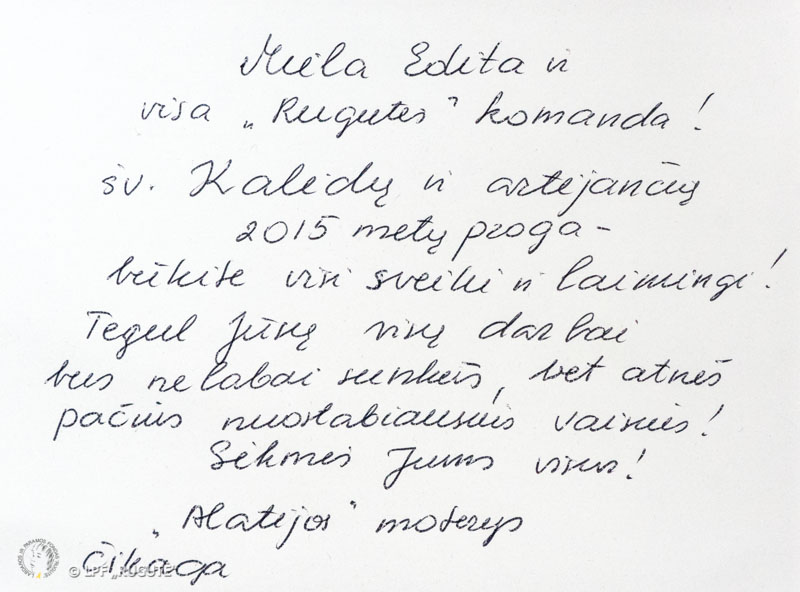 Miela Edita ir
visa „Rugutės" komanda!
šv. Kalėdų ir artėjančių
2015 metų proga –
būkite visi sveiki ir laimingi!
Tegul Jūsų visų darbai
bus nelabai sunkūs, bet atneš
pačius nuostabiausius vaisius!
Sėkmės Jums visus!
„Alatėjos" moterys
Čikaga
© LPF „RUGUTĖ"